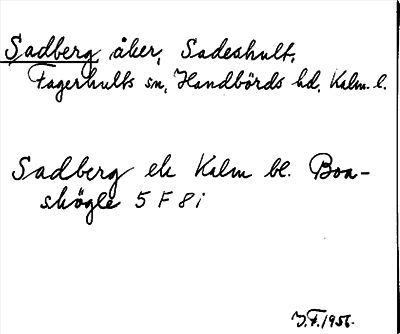 Sadberg åker, Sadeshult,
Fagerhults sn, Handbörds hd, Kalm. l.
Sadberg ek Kalm bl. Boa-
skögle 5 F 8 i
J.F. 1956.